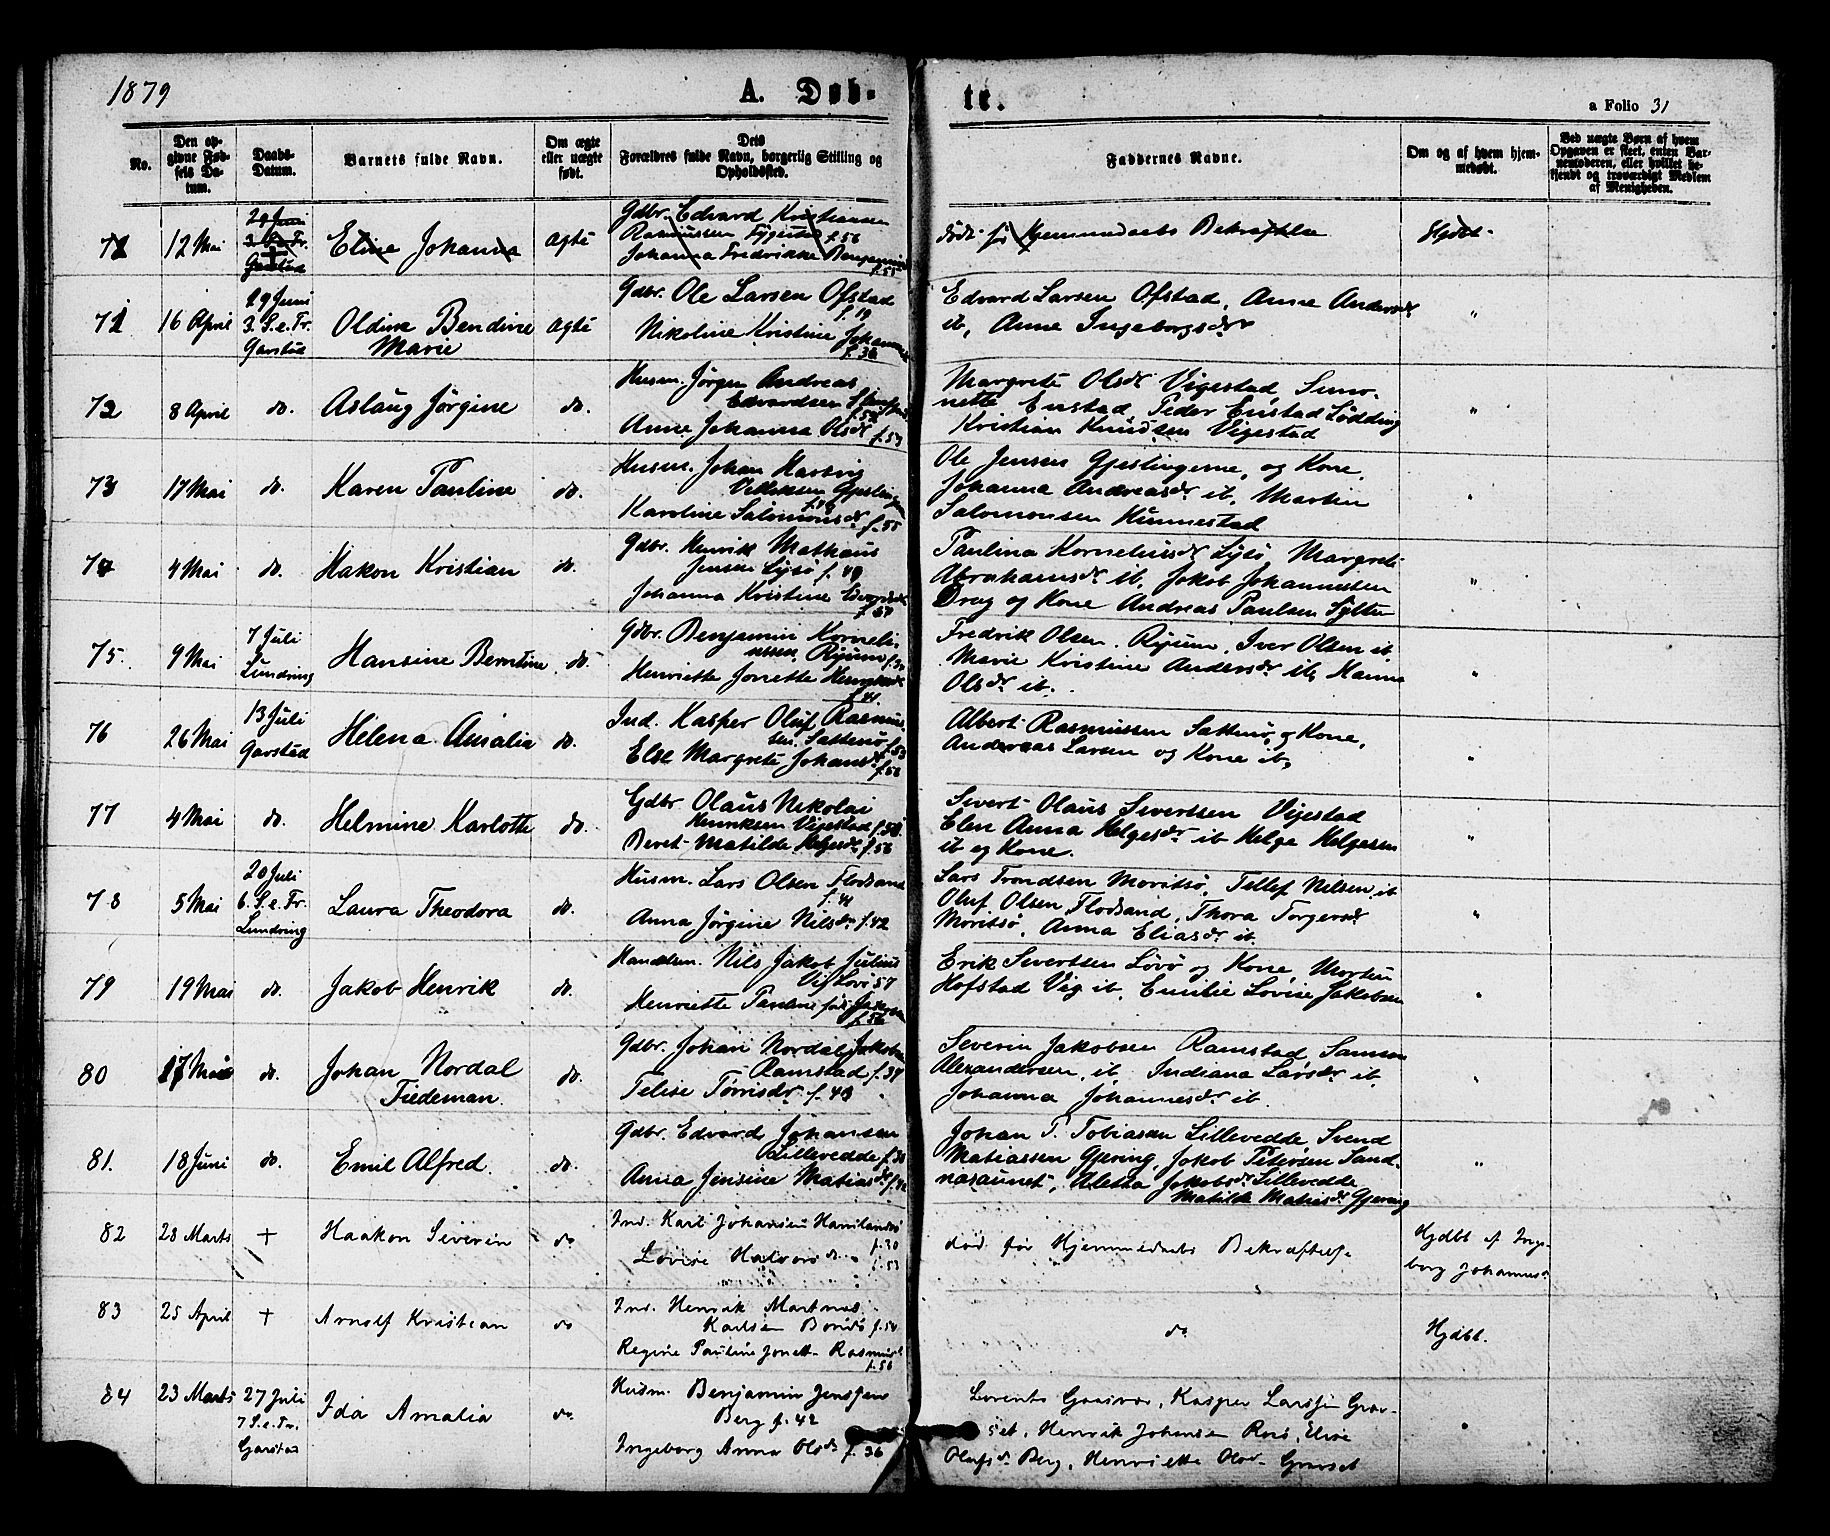 1879
A. Døb-
te.
a Folio 31
No.
Den op-
givne Fød-
sels Da-
tum.
Daabs-
Datum.
Barnets fulde Navn.
Om ægte
eller uægte
født.
Dets
Forældres fulde Navn, borgerlig Stilling og
Opholdssted.
Faddernes Navne.
Om og af hvem hjem-
medøbt.
Ved uægte Børn af hvem
Opgaven er skeet, enten Bar-
nemoderen, eller hvilket be-
kjendt og troværdigt Medlem
af Menigheden.
12 Mai
29 Juni
3 S. e. Tr.
Garstad
Eline Johanna
ægte
Gdbr. Edvard Kristiansen
Rasmussen f. 56
Johanna Fredrikke f. 55
død før Hjemmedaabs Bekræftelse
Hjdbt.
71
16 April
29 Juni
3. S. e. Tr.
Garstad
Oldine Bendine
Marie
ægte
Gdbr. Ole Larsen Ofstad
f. 19
Nikoline Kristine
f. 36
Edvard Larsen Ofstad, Anne Andersdr
ib, Anne Ingeborgsdr
"
72
8 April
do.
Aslaug Jørgine
do.
Husm. Jørgen Andreas
Edvardsen
Anne Johanna Olsdr f. 53
Margrete Olsdr Vigestad,
Enstad, Peder Enstad Lødding
Kristian Knudsen Vigestad
"
73
17 Mai
do.
Karen Pauline
do.
Husm. Johan
Karoline Salomonsdr f. 55
Ole Jensen Gjeslingerne, og Kone,
Johanna Andreasdr ib, Martin
Salomonsen Hunnestad
"
74
4 Mai
do.
Hakon Kristian
do.
Gdbr. Henrik Mathæus
Jensen Lysø f. 49
Johanna Kristine
f. 57
Paulina Korneliusdr Lysø Margrete
Abrahamsdr ib, Jakob Johannesen
Drag og Kone Andreas Paulsen
"
75.
9 Mai
7 Juli
Lundring
Hansine Berntine
do.
Gdbr. Benjamin Korneli-
ussen, Ryum
Henriette Jonette
f. 41.
Fredrik Olsen. Ryum, Iver Olsen ib,
Marie Kristine Andersdr ib, Hanna
Olsdr ib.
"
76
26 Mai
13 Juli
Garstad
Helena Amalia
do.
Ind. Kasper Oluf Rasmus-
sen. Sattenø, f. 53
Else Margrete Johansdr f. 56
Albert Rasmussen Sattenø, og Kone,
Andreas Larsen og Kone ib,
"
77
4 Mai
do.
Helmine Karlotte
do.
Gdbr Olaus Nikolai
Henriksen Vigestad f. 50
Beret Matilde Helgesdr f. 56
Sivert Olaus Sivertsen Vigestad
Elen Anna Helgesdr ib Helge Helgesen
ib og Kone.
"
78
5 Mai
20 Juli
6. S. e. Tr.
Lundring
Laura Theodora
do.
Husm. Lars Olsen Flodsand
f. 41
Anna Jørgine Nilsdr f. 42
Lars Trondsen Moritsø, Tellef Nilsen ib
Oluf Olsen Flodsand, Thora Torgersdr
Moritsø, Anna Eliasdr ib.
"
79
19 Mai
do.
Jakob Henrik
do.
Handelsm. Nils Jakob Julius
Vig Lovø 57
Henriette Pauline født
f. 56
Erik Sivertsen Løvø og Kone, Morten
Hofstad Vig ib, Emilie Lovise Jakobsen
"
80
17 Mai
do.
Johan Nordal
Tiedeman.
do.
Gdbr. Johan Nordal Jakobsen
Ramstad f. 37
Telise Tørrisdr f. 40
Severin Jakobsen Ramstad, Samson
Alexandersen, ib Indiana Larsdr ib,
Johanna Johannesdr ib.
"
81.
18 Juni
do.
Emil Alfred.
do.
Gdbr. Edvard Johansen
Lillevedde f. 38
Anna Jensine Matiasdr f. 42
Johan T. Tobiasen Lillevedde, Svend
Matiassen Gjering, Jakob Petersen Sand-
nasaunet, Aletta Jakobsdr Lillevedde,
Matilde Matiasdr Gjering
"
82
28 Marts
+
Haakon Siverin
do
Ind. Karl Johansen
f. 30
Lovise
f. 53
død før Hjemmedaabs Bekræftelse
Hjdbt af Inge-
borg Johannesdr
83
25 April
+
Arnolf Kristian
do
Ind. Henrik Martinus
Karlsen Bondø f. 54
Regine Pauline Jonette Rasmusdr
f. 56
do
Hjdbt.
84
23 Marts
27 Juli
7 S. e. Tr.
Garstad
Ida Amalia
do
Husm. Benjamin Jenssen
Berg f. 42
Ingeborg Anna Olsdr f. 36
Lorents Grasvær, Kasper Larssen Grav-
set, Henrik Johansen Ross, Elise
Olufsdr Berg, Henriette Olsdr Gravset
"